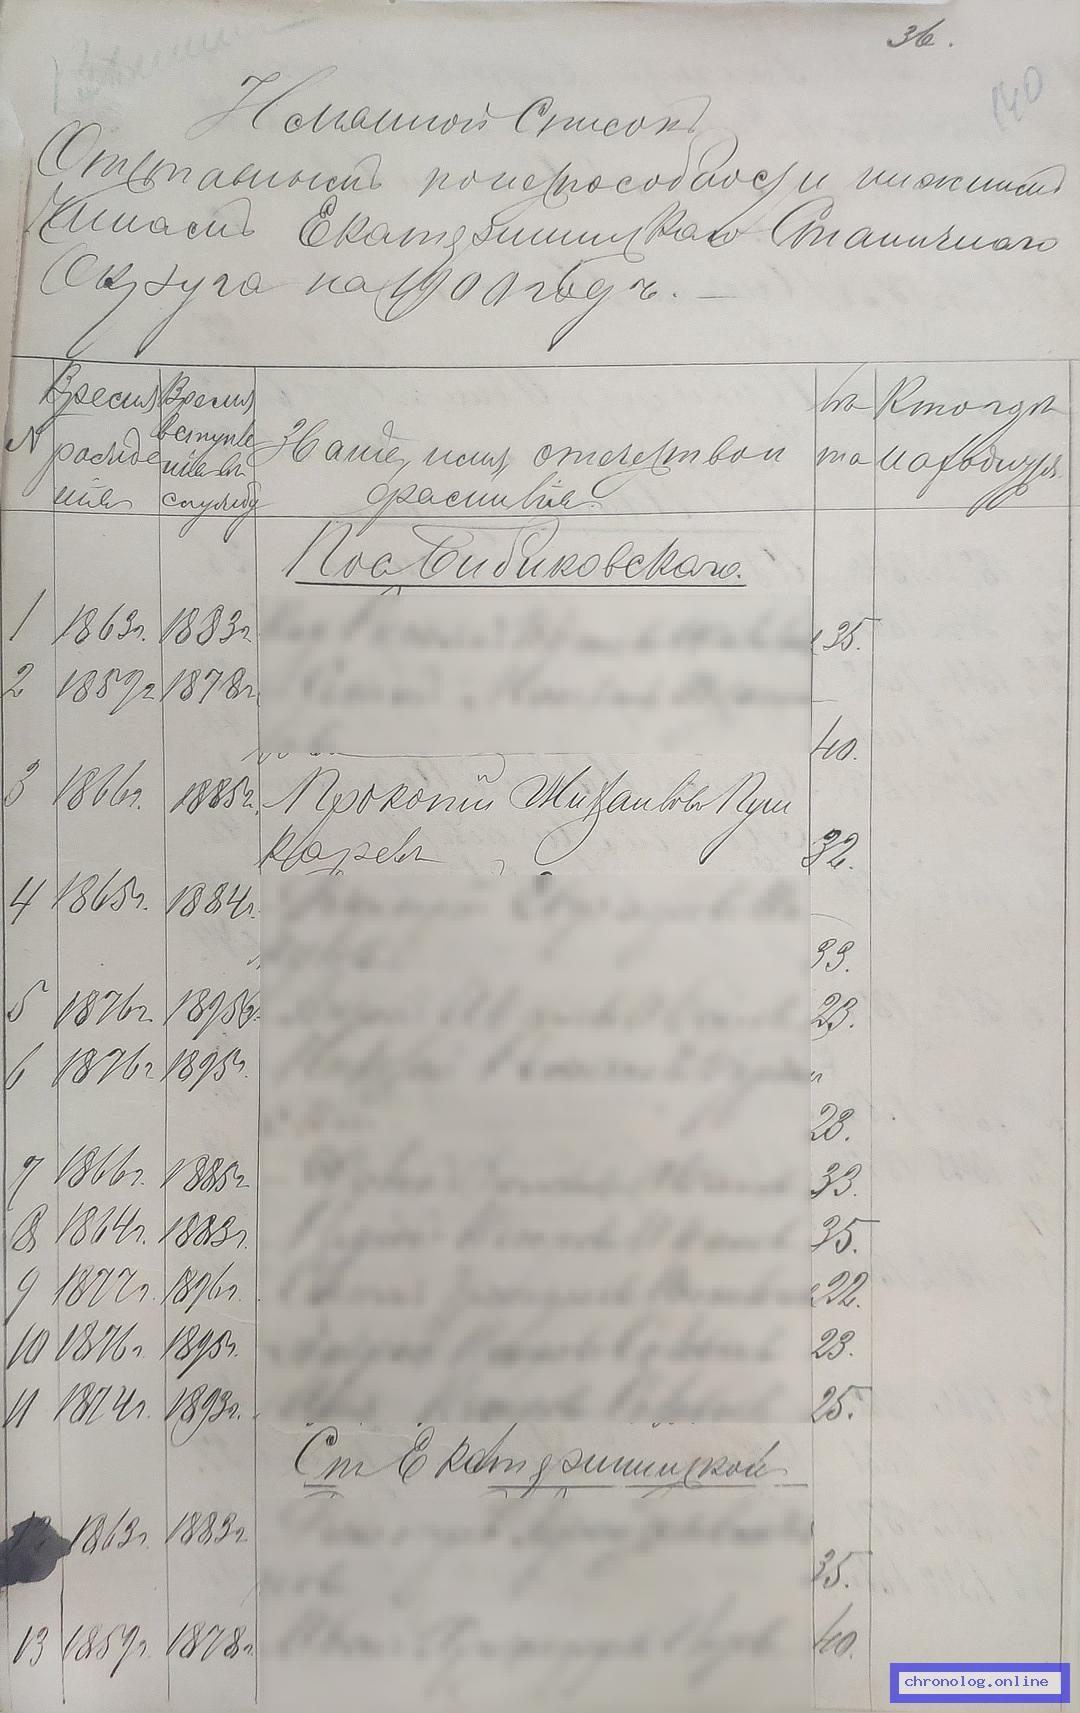 36.
140
Именной Списокъ
Отставнымъ понеспособности нижнимъ
Чинамъ Екатерининскаго Станичнаго
Округа на 1901 годъ.
№ Время рожденія Время вступленія въ службу Званіе, имя, отчество и фамилія. Лѣта Кто гдѣ находится
Пос Бибиковскаго.
1 1863г. 1883г. 35.
2 1859г 1878г. 40.
3 1866г. 1885г. Прокопій Михайловъ Пуш
каревъ 32.
4 1865г. 1884г. 33.
5 1876г. 1895г. 23.
6 1876г 1895г. 23.
7 1866г. 1885г 33.
8 1864г. 1883г. 35.
9 1877г. 1896г. 22.
10 1876г. 1895г. 23.
11 1874г. 1893г. 25.
Ст Екатерининской
12 1863г. 1883г 35.
13 1859г. 1878г. 40.
chronolog.online